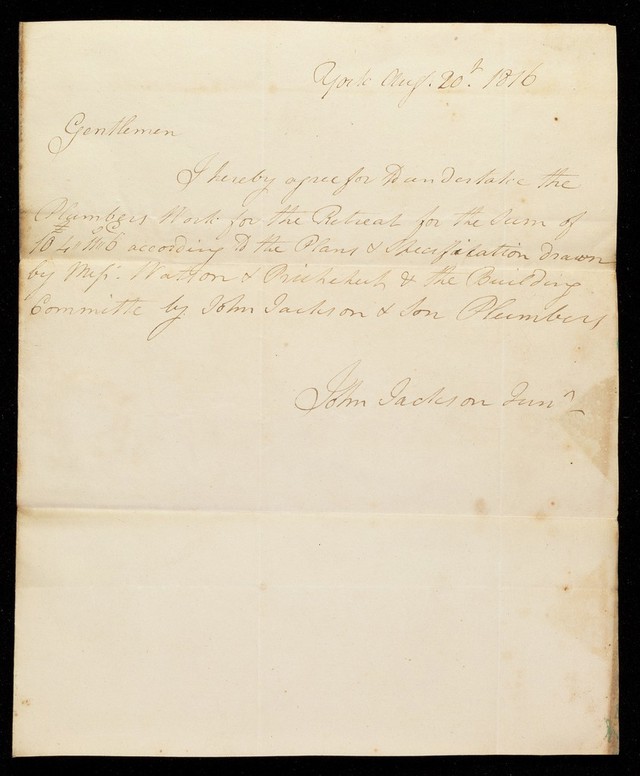 York Augt. 20th. 1816
Gentlemen
I hereby agree for to undertake the
Plumbers Work for the Retreat for the Sum of
according to the Plans & Specification drawn
by Messrs. Watson & Pritchett & the Building
Committe by John Jackson & Son Plumbers
John Jackson Junr